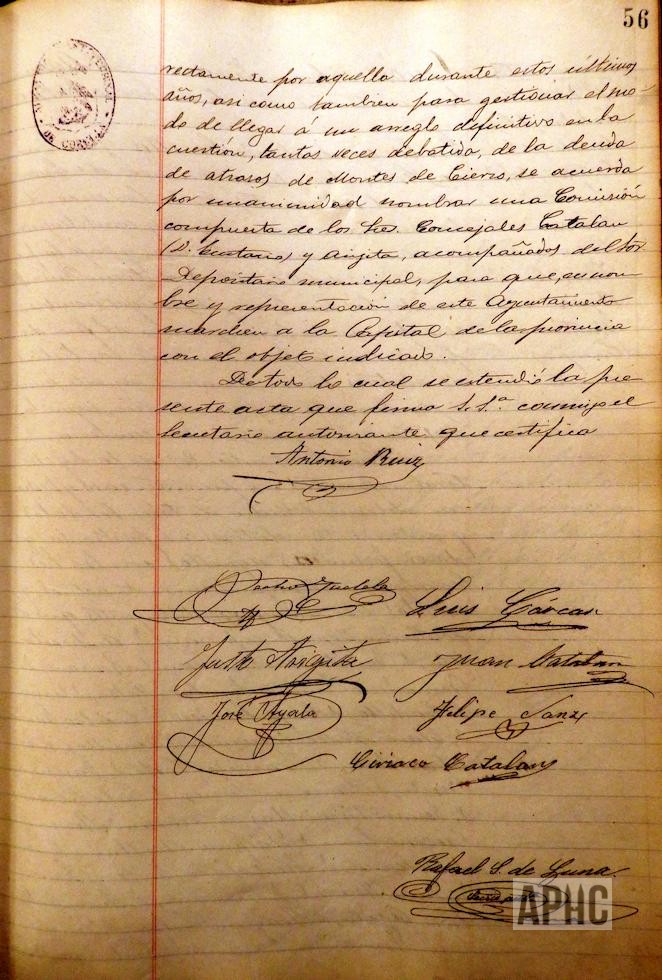 56
rectamente por aquella durante estos últimos
años, asi como tambien para gestionar el mo-
do de llegar á un arreglo definitivo en la
cuestión, tantas veces debatida, de la deuda
de atrasos de Montes de Cierzo, se acuerda
por unanimidad nombrar una Comisión
compuesta de los Sres. Concejales Catalan
(D. Gustavo) y Arigita, acompañados del Sor.
Depositario municipal, para que, en nom-
bre y representación de este Ayuntamiento
marchen a la Capital de la provincia
con el objeto indicado.
De todo lo cual se extendió la pre
sente acta que firma S. Sª. conmigo el
Secretario autorizante que certifica
Antonio Ruiz
Pedro Tudela
Luis Garcas
Justo Arigita
Juan Catalan
José Ayala
Felipe Sanz
Ciriaco Catalan
Rafael S. de Luna
APHC